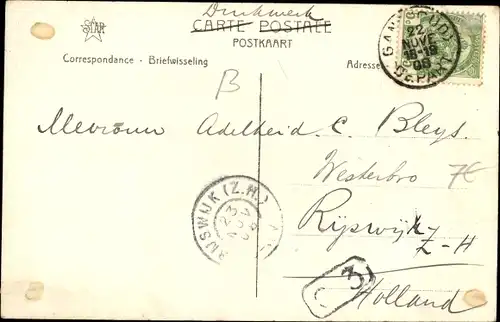 STAR
Drukwerk
CARTE POSTALE
POSTKAART
Correspondance - Briefwisseling
Adresse
22
NOV
18-19
08
DÉPART
B
Mevrouw Adelheid C. Bleys
Westerbro
7E
Rijswijk
Z-H
Holland
RIJSWIJK (Z.H.)
3